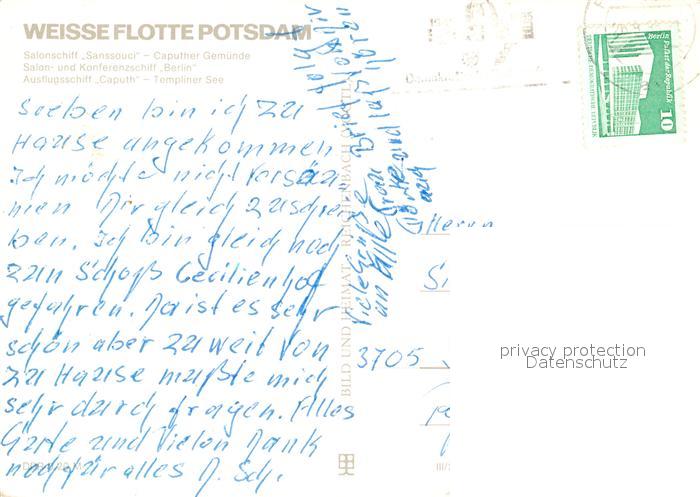 WEISSE FLOTTE POTSDAM
Salonschiff „Sanssouci" – Caputher Gemünde
Salon- und Konferenzschiff „Berlin"
Ausflugsschiff „Caputh" – Templiner See
soeben bin ich zu
Hause angekommen
Ich möchte nicht versäu
men Dir gleich zuschrei
ben. Ich bin gleich noch
zum Schloß Cecilienhof
gefahren. Da ist es sehr
schön aber zu weit von
zu Hause mußte mich
sehr durch fragen. Alles
Gute und vielen Dank
noch für alles D. Sch.
Viele Grüße
an alle Frau
Brief folgt
auch
BILD UND HEIMAT REICHENBACH
Herrn
3705
Berlin Palast der Republik
DEUTSCHE DEMOKRATISCHE REPUBLIK
10
privacy protection
Datenschutz